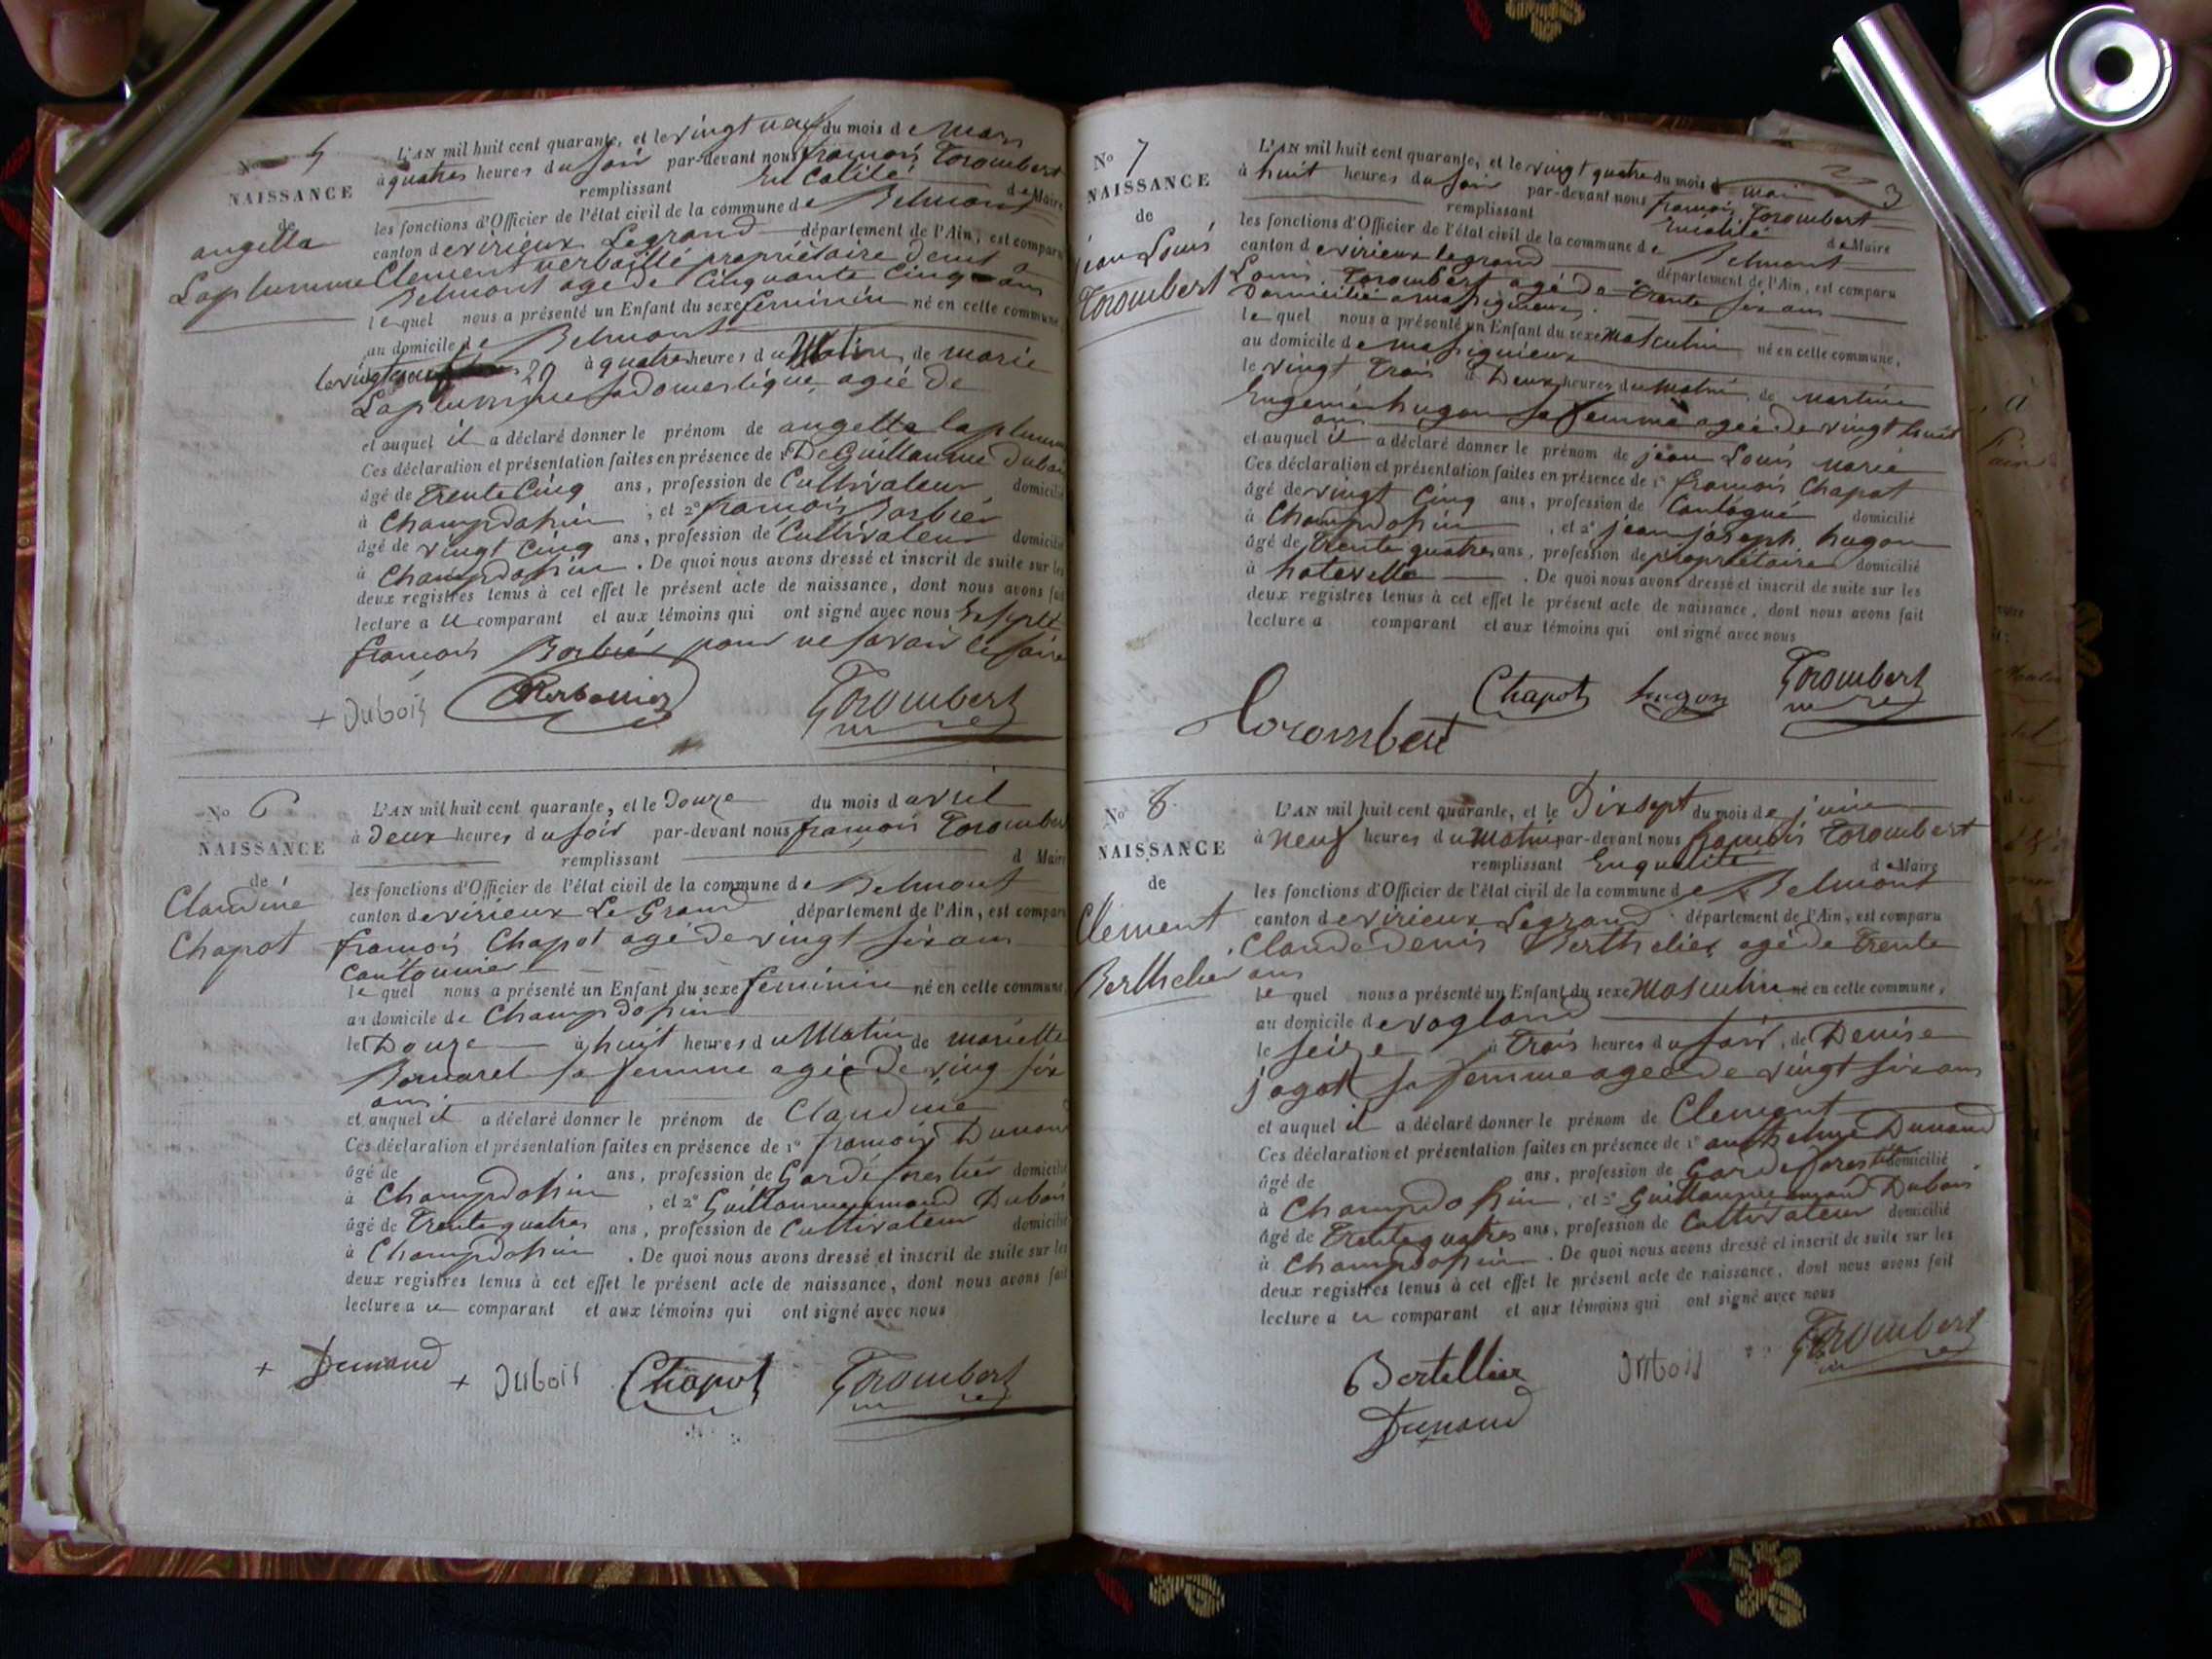 No 5
NAISSANCE
de
angella
Laplumme
L'AN mil huit cent quarante, et le vingt neuf du mois de Mars
à quatres heures du soir par-devant nous françois Torombert
remplissant En Calité de Maire
les fonctions d'Officier de l'état civil de la commune de Belmont
canton de virieux Legrand département de l'Ain, est comparu
Clement verbaillé propriétaire demt a
Belmont agé de Cinquante Cinq ans
lequel nous a présenté un Enfant du sexe feminin né en cette commune,
au domicile de Belmont
le vingt neuf 29 à quatre heures du Matin, de marie
Laplumme sa domestique agié de
et auquel il a déclaré donner le prénom de angella laplumme
Ces déclaration et présentation faites en présence de 1° De Guillaume Dubois
âgé de Trente Cinq ans, profession de Cultivateur domicilié
à Champdosin, et 2° françois Barbier
âgé de vingt Cinq ans, profession de Cultivateur domicilié
à Champdosin. De quoi nous avons dressé et inscrit de suite sur les
deux registres tenus à cet effet le présent acte de naissance, dont nous avons fait
lecture a u comparant et aux témoins qui ont signé avec nous
françois Barbier pour ne savoir le faire
+ Dubois
Torombert
No 6
NAISSANCE
de
Claudine
Chapot
L'AN mil huit cent quarante, et le Douze du mois d avril
à Deux heures du soir par-devant nous françois Torombert
remplissant d Maire
les fonctions d'Officier de l'état civil de la commune de Belmont
canton de virieux Le Grand département de l'Ain, est comparu
françois Chapot agé de vingt six ans
Cantonnier
lequel nous a présenté un Enfant du sexe feminin né en cette commune,
au domicile de Champdosin
le Douze à huit heures du Matin de mariette
Bornarel sa femme agié De ving six
ans
et auquel il a déclaré donner le prénom de Claudine
Ces déclaration et présentation faites en présence de 1° françois Dunand
âgé de ans, profession de Garde forestier domicilié
à Champdosin, et 2° Guillaume Dubois
âgé de Trente quatres ans, profession de Cultivateur domicilié
à Champdosin. De quoi nous avons dressé et inscrit de suite sur les
deux registres tenus à cet effet le présent acte de naissance, dont nous avons fait
lecture a u comparant et aux témoins qui ont signé avec nous
+ Dunand + Dubois Chapot Torombert
3
No 7
NAISSANCE
de
jean Louis
Torombert
L'AN mil huit cent quarante, et le vingt quatre du mois d mai
à huit heures du soir par-devant nous françois Torombert
remplissant Enialité de Maire
les fonctions d'Officier de l'état civil de la commune de Belmont
canton de virieux legrand département de l'Ain, est comparu
Louis Torombert agé de Trente six ans
Domicilié a massignieux
lequel nous a présenté un Enfant du sexe Masculin né en cette commune,
au domicile de massignieux
le vingt Trois à Deux heures du Matin, de martine
Eugenie hugon sa femme agée de vingt huit
ans
et auquel il a déclaré donner le prénom de jean Louis marie
Ces déclaration et présentation faites en présence de 1° françois Chapot
âgé de vingt Cinq ans, profession de domicilié
à Champdosin, et 2° jean joseph hugon
âgé de Trente quatres ans, profession de propriétaire domicilié
à hotevelle. De quoi nous avons dressé et inscrit de suite sur les
deux registres tenus à cet effet le présent acte de naissance, dont nous avons fait
lecture a comparant et aux témoins qui ont signé avec nous
Torombert Chapot hugon Torombert
No 8
NAISSANCE
de
Clement
Berthelier
L'AN mil huit cent quarante, et le Dixsept du mois de juin
à neuf heures du Matin par-devant nous françois Torombert
remplissant Enqualité de Maire
les fonctions d'Officier de l'état civil de la commune de Belmont
canton de virieux Legrand département de l'Ain, est comparu
Claude Denis Berthelier agé de Trente
ans
lequel nous a présenté un Enfant du sexe Masculin né en cette commune,
au domicile de vogland
le seize à Trois heures du soir, de Denise
jagot sa femme ageé de vingt six ans
et auquel il a déclaré donner le prénom de Clement
Ces déclaration et présentation faites en présence de 1° anthelme Dunand
âgé de ans, profession de Garde forestier domicilié
à Champdosin, et 2° Guillaume Dubois
âgé de Trente quatres ans, profession de Cultivateur domicilié
à Champdosin. De quoi nous avons dressé et inscrit de suite sur les
deux registres tenus à cet effet le présent acte de naissance, dont nous avons fait
lecture a u comparant et aux témoins qui ont signé avec nous
Bertellier Dubois Torombert
Dunand